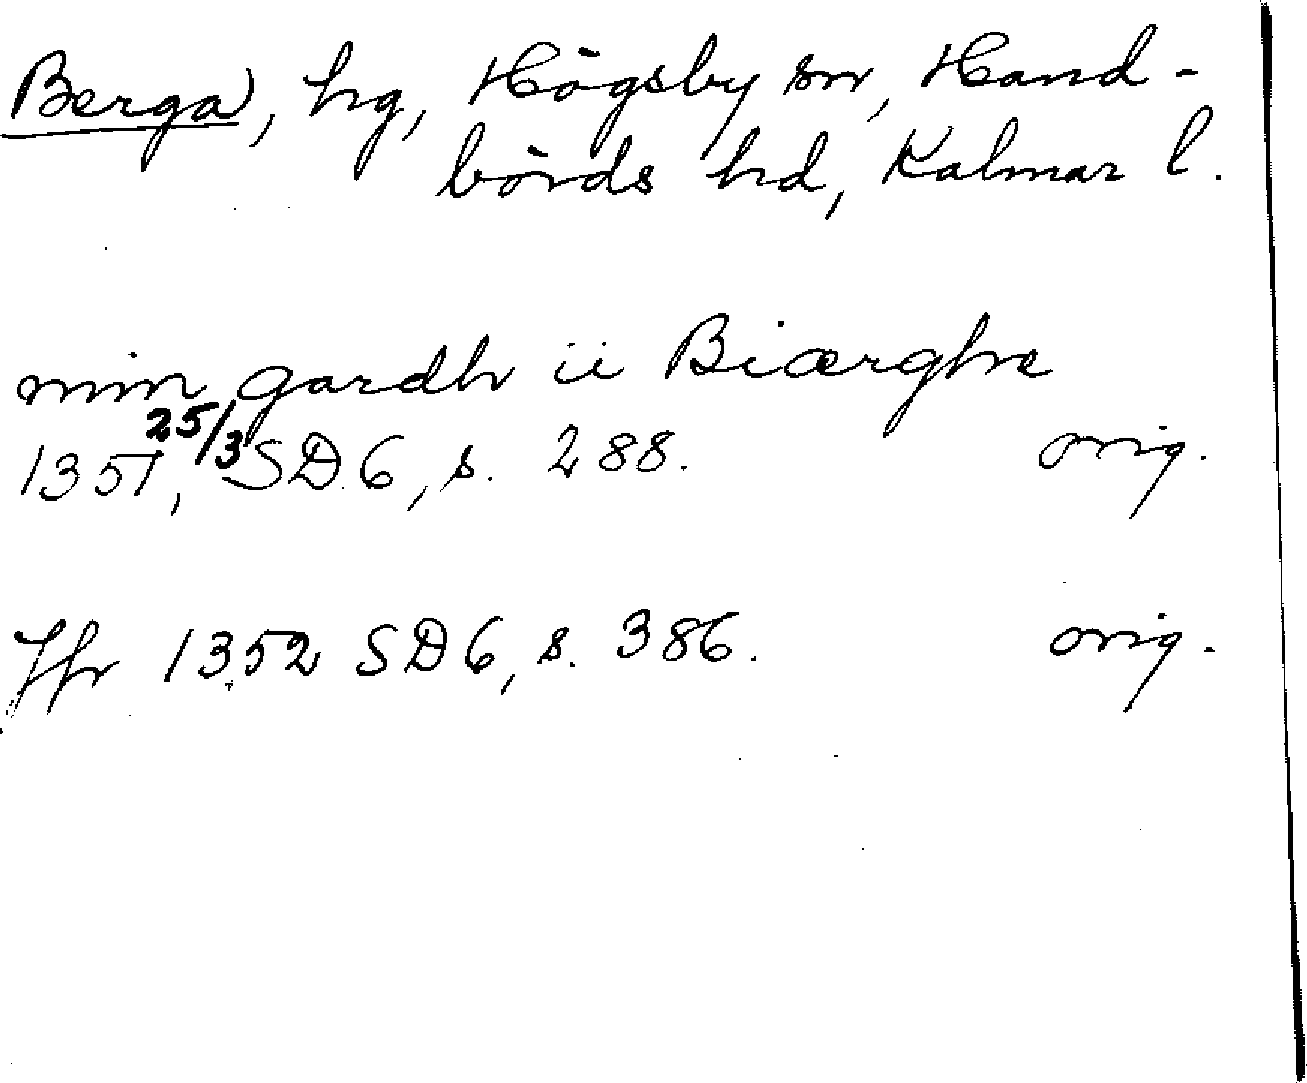 Berga, hg, Högsby sn, Hand-
börds hd, Kalmar l.
min gardh ii Biærghe
1351, 25/3 SD 6, s. 288. orig.
Jfr 1352 SD 6, s. 386. orig.